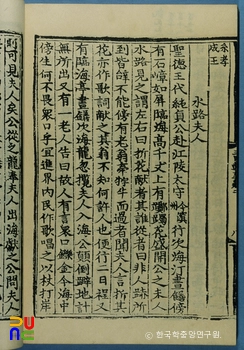 水路夫人
聖德王代純貞公赴江陵太守今溟州行次海汀晝饍傍
有石嶂如屏臨海高千丈上有躑躅花盛開公之夫人
水路見之謂左右曰折花獻者其誰從者曰非人跡所
到皆辭不能傍有老翁牽牸牛而過者聞夫人言折其
花亦作歌詞獻之其翁不知何許人也便行二日程又
有臨海亭晝饍次海龍忽攬夫人入海公顚倒躄地計
無所出又有一老人告曰故人有言衆口鑠金今海中
傍生何不畏衆口乎宜進界內民作歌唱之以杖打岸
則可見夫人矣公從之龍奉夫人出海獻之公問夫人
한국학중앙연구원